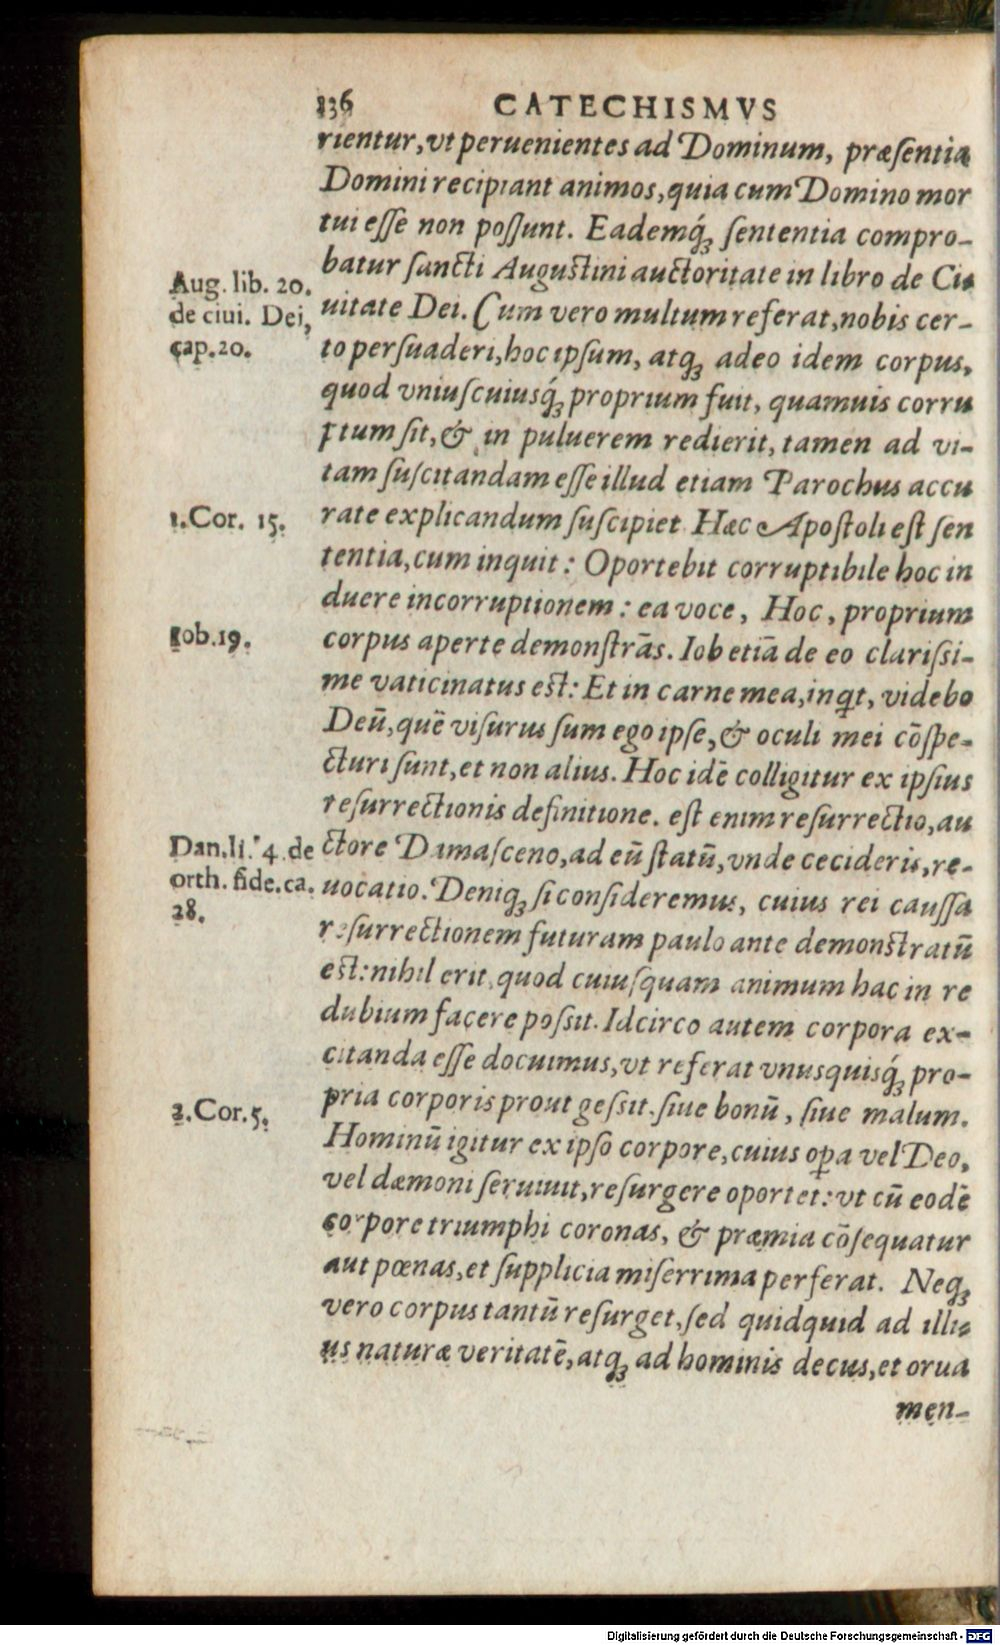 136 CATECHISMVS
rientur, vt peruenientes ad Dominum, præſentia
Domini recipiant animos, quia cum Domino mor
tui eſſe non poſſunt. Eademq́; ſententia compro-
batur ſancti Auguſtini auctoritate in libro de Ci-
Aug. lib. 20.
de ciui. Dei,
cap. 20.
uitate Dei. Cum vero multum referat, nobis cer-
to perſuaderi, hoc ipſum, atq; adeo idem corpus,
quod vniuſcuiusq́; proprium fuit, quamuis corru
ptum ſit, & in puluerem redierit, tamen ad vi-
tam ſuſcitandam eſſe illud etiam Parochus accu
rate explicandum ſuſcipiet. Hæc Apoſtoli eſt ſen
1.Cor. 15.
tentia, cum inquit: Oportebit corruptibile hoc in
duere incorruptionem: ea voce, Hoc, proprium
corpus aperte demonſtrãs. Iob etiã de eo clariſsi-
Iob.19.
me vaticinatus eſt: Et in carne mea, inqt, videbo
Deũ, quẽ viſurus ſum ego ipſe, & oculi mei cõſpe-
cturi ſunt, et non alius. Hoc idẽ colligitur ex ipſius
reſurrectionis definitione. eſt enim reſurrectio, au
ctore Damaſceno, ad eũ ſtatũ, vnde cecideris, re-
Dan.li. 4 de
orth. fide.ca.
28.
uocatio. Deniq; ſi conſideremus, cuius rei cauſſa
reſurrectionem futuram paulo ante demonſtratũ
eſt: nihil erit, quod cuiuſquam animum hac in re
dubium facere poſsit. Idcirco autem corpora ex-
citanda eſſe docuimus, vt referat vnusquisq́; pro-
pria corporis prout geſsit. ſiue bonũ, ſiue malum.
2.Cor.5.
Hominũ igitur ex ipſo corpore, cuius oꝑa vel Deo,
vel dæmoni ſeruiuit, reſurgere oportet: vt cũ eodẽ
corpore triumphi coronas, & præmia cõſequatur
aut pœnas, et ſupplicia miſerrima perferat. Neq;
vero corpus tantũ reſurget, ſed quidquid ad illi-
us naturæ veritatẽ, atq; ad hominis decus, et orna
men-
Digitalisierung gefördert durch die Deutsche Forschungsgemeinschaft - DFG